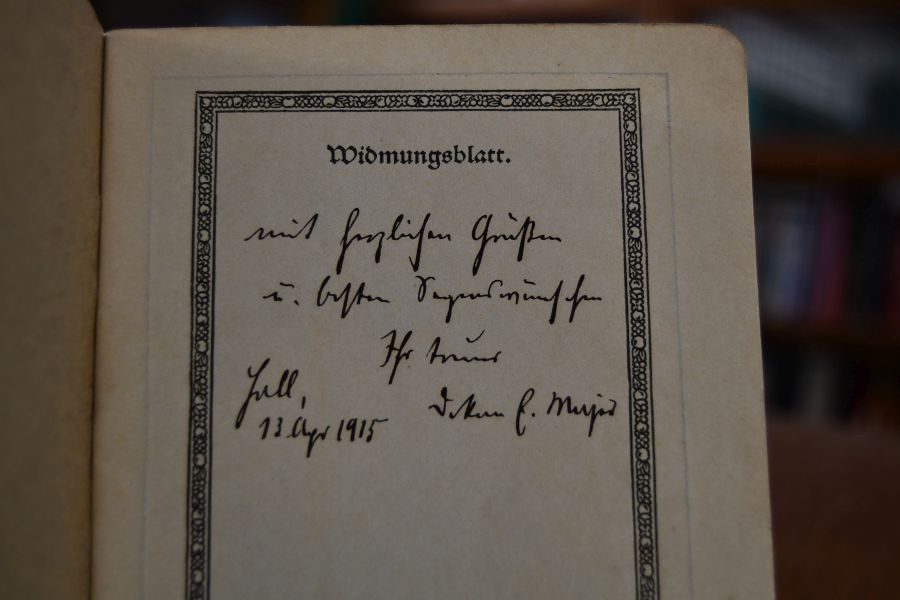 Widmungsblatt.
mit herzlichen Grüßen
u. besten Segenswünschen
Ihr treuer
Hall,
Dekan E.
13. Apr 1915